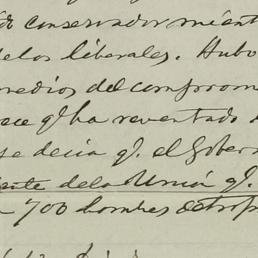 do conservador mient
delos liberales. Hubo
medios del comprom
ece qᵉ ha reventado
se decia qᵉ. el Gober
ente dela Union qᵉ.
700 hombres detrop